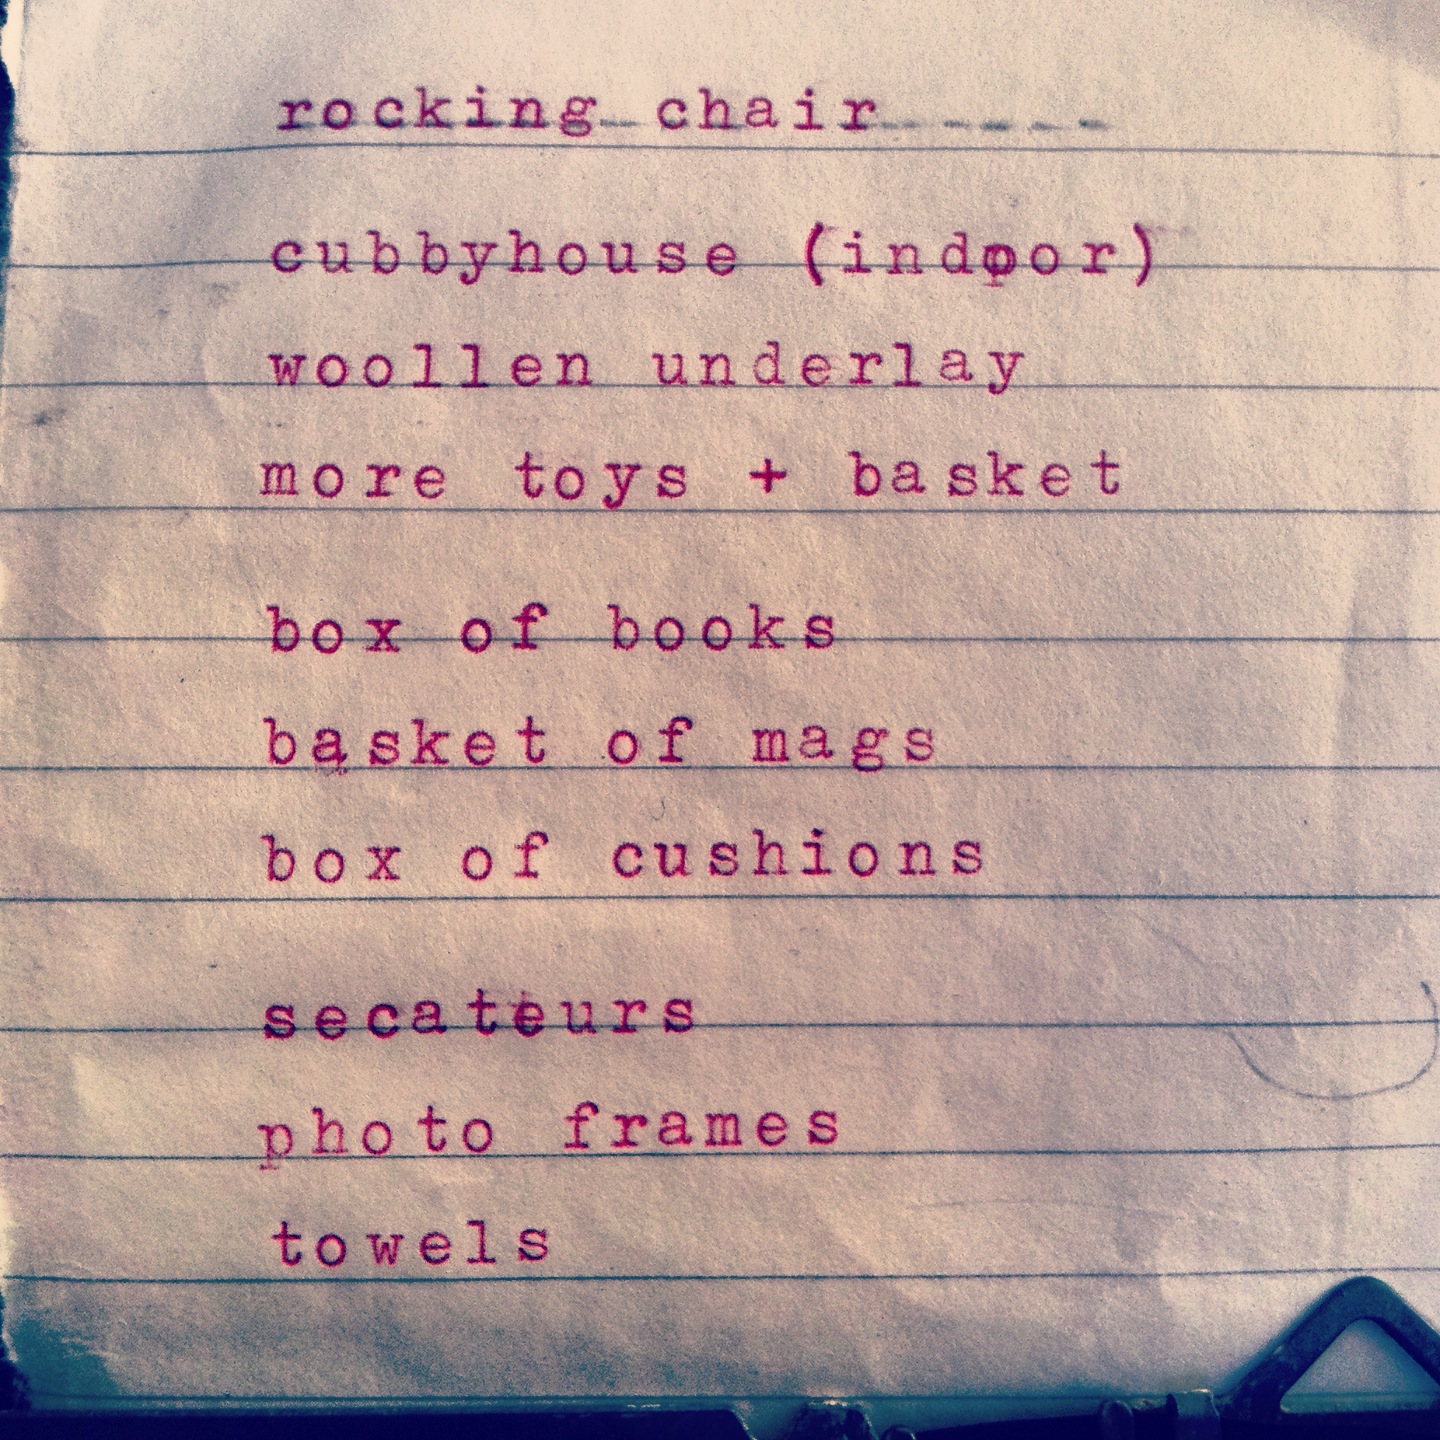 rocking chair
cubbyhouse (indoor)
woollen underlay
more toys + basket
box of books
basket of mags
box of cushions
secateurs
photo frames
towels